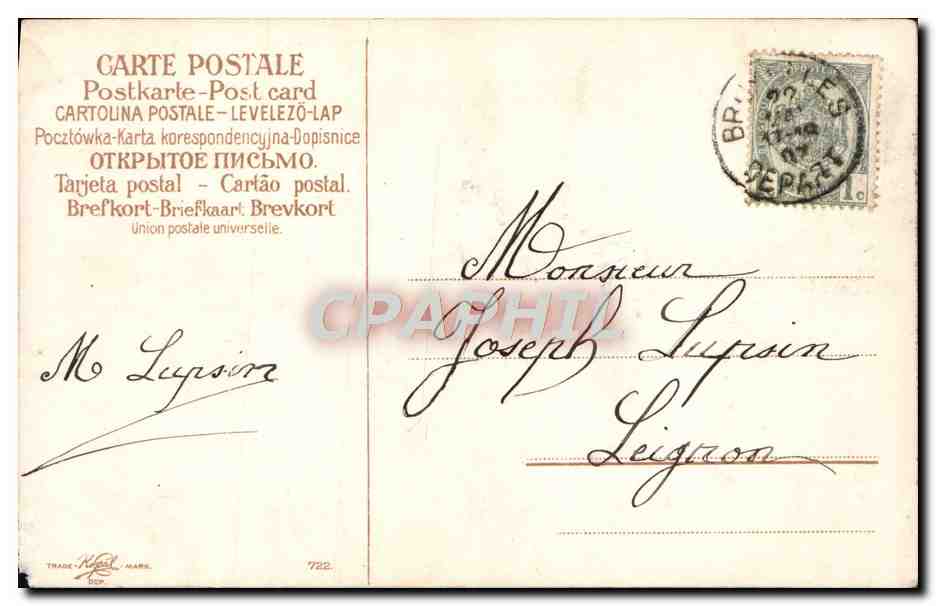 CARTE POSTALE
Postkarte-Post card
CARTOLINA POSTALE-LEVELEZŐ-LAP
Pocztówka-Karta korespondencyjna-Dopisnice
ОТКРЫТОЕ ПИСЬМО.
Tarjeta postal - Cartão postal.
Brefkort-Briefkaart Brevkort
Union postale universelle.
BRUXELLES
DEPART
1c
Monsieur
Joseph Lupsin
Leignon
M Lupsin
CPAPHIL
TRADE - MARK.
DEP.
722